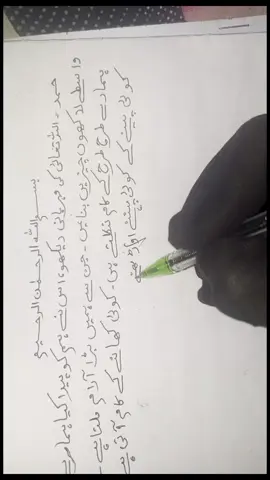 بسم اللہ الرحمٰن الرحیم
حمد۔ اللہ تعالیٰ کی مہربانی دیکھو، اس نے ہم کو پیدا کیا ہمارے
واسطے لاکھوں چیزیں بنائیں۔ جن سے ہمیں بڑا آرام ملتا ہے۔
ہمارے طرح طرح کے کام نکلتے ہیں۔ کوئی کھانے کے کام آتی ہے
کوئی پینے کے کوئی پہننے اوڑھنے